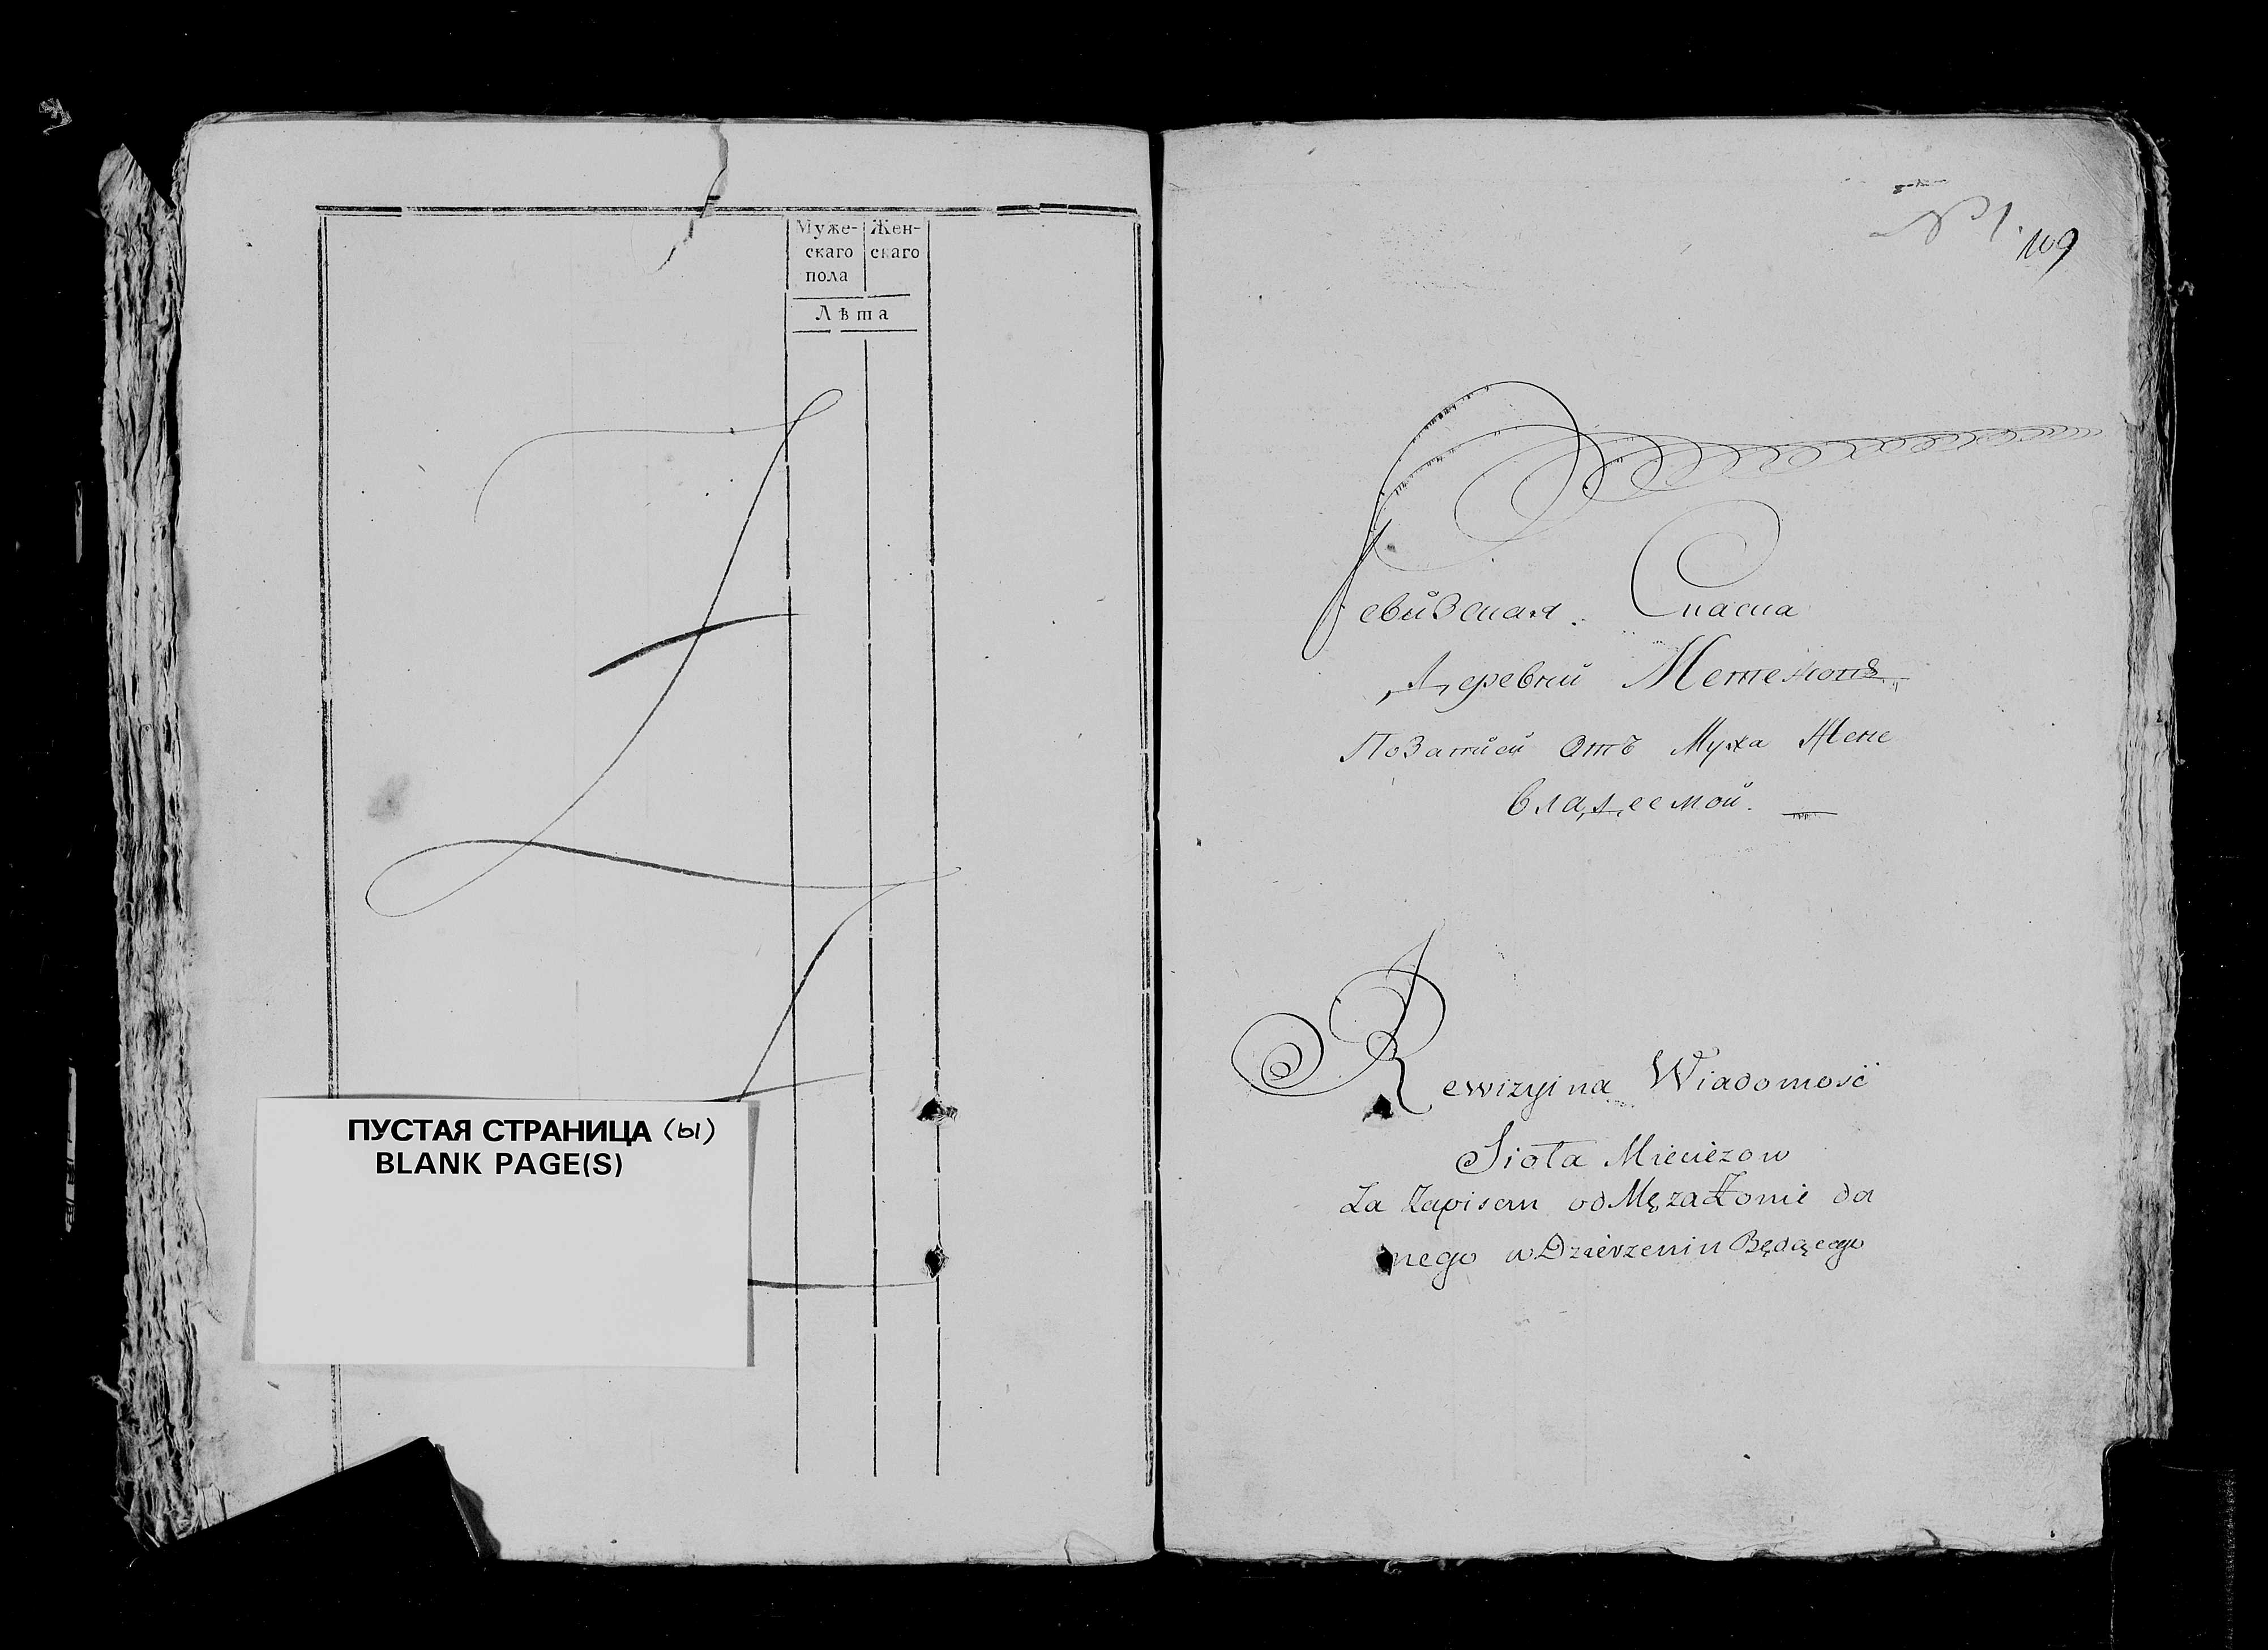 Муже-
скаго
пола
Жен-
скаго
Лѣта
ПУСТАЯ СТРАНИЦА (ы)
BLANK PAGE(S)
№ 1.
109
Ревизская Сказка
Деревни
По Записи Отъ Мужа Жене
владеемой.
Rewizyina Wiadomość
Sioła Mieciezow
Za Zapisem od Męza Zonie da
nego w Dzierzeniu Będącego